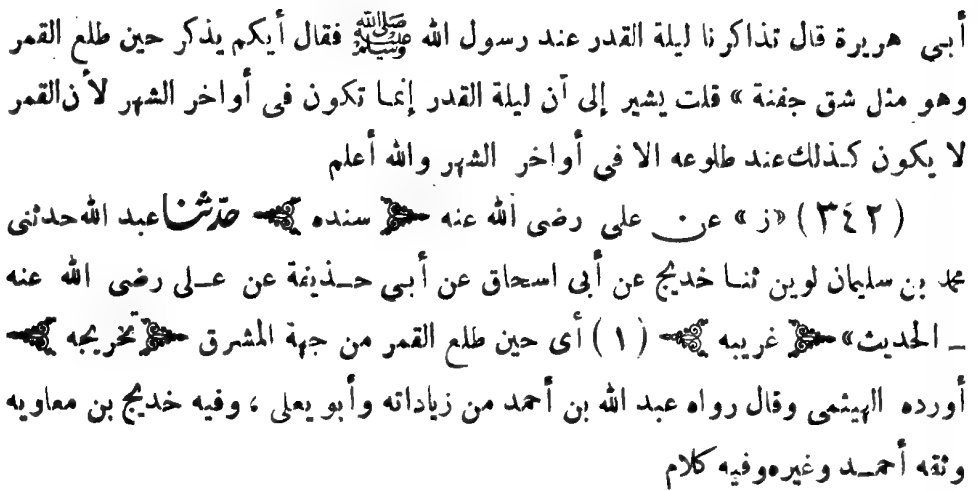 أبي هريرة قال تذاكرنا ليلة القدر عند رسول الله ﷺ فقال أيكم يذكر حين طلع القمر
وهو مثل شق جفنة » قلت يشير إلى أن ليلة القدر إنما تكون فى أواخر الشهر لأن القمر
لا يكون كذلك عند طلوعه الا في أواخر الشهر والله أعلم
(٣٤٢) «ز» عن على رضى الله عنه ﴿ سنده ﴾ حدثنا عبد الله حدثنى
محمد بن سليمان لوين ثنا خديج عن أبى اسحاق عن أبي حذيفة عن على رضى الله عنه
ـ الحديث» ﴿ غريبه ﴾ (١) أى حين طلع القمر من جهة المشرق ﴿ تخريجه ﴾
أورده الهيثمى وقال رواه عبد الله بن أحمد من زياداته وأبو يعلى ، وفيه خديج بن معاويه
وثقه أحمد وغيره وفيه كلام